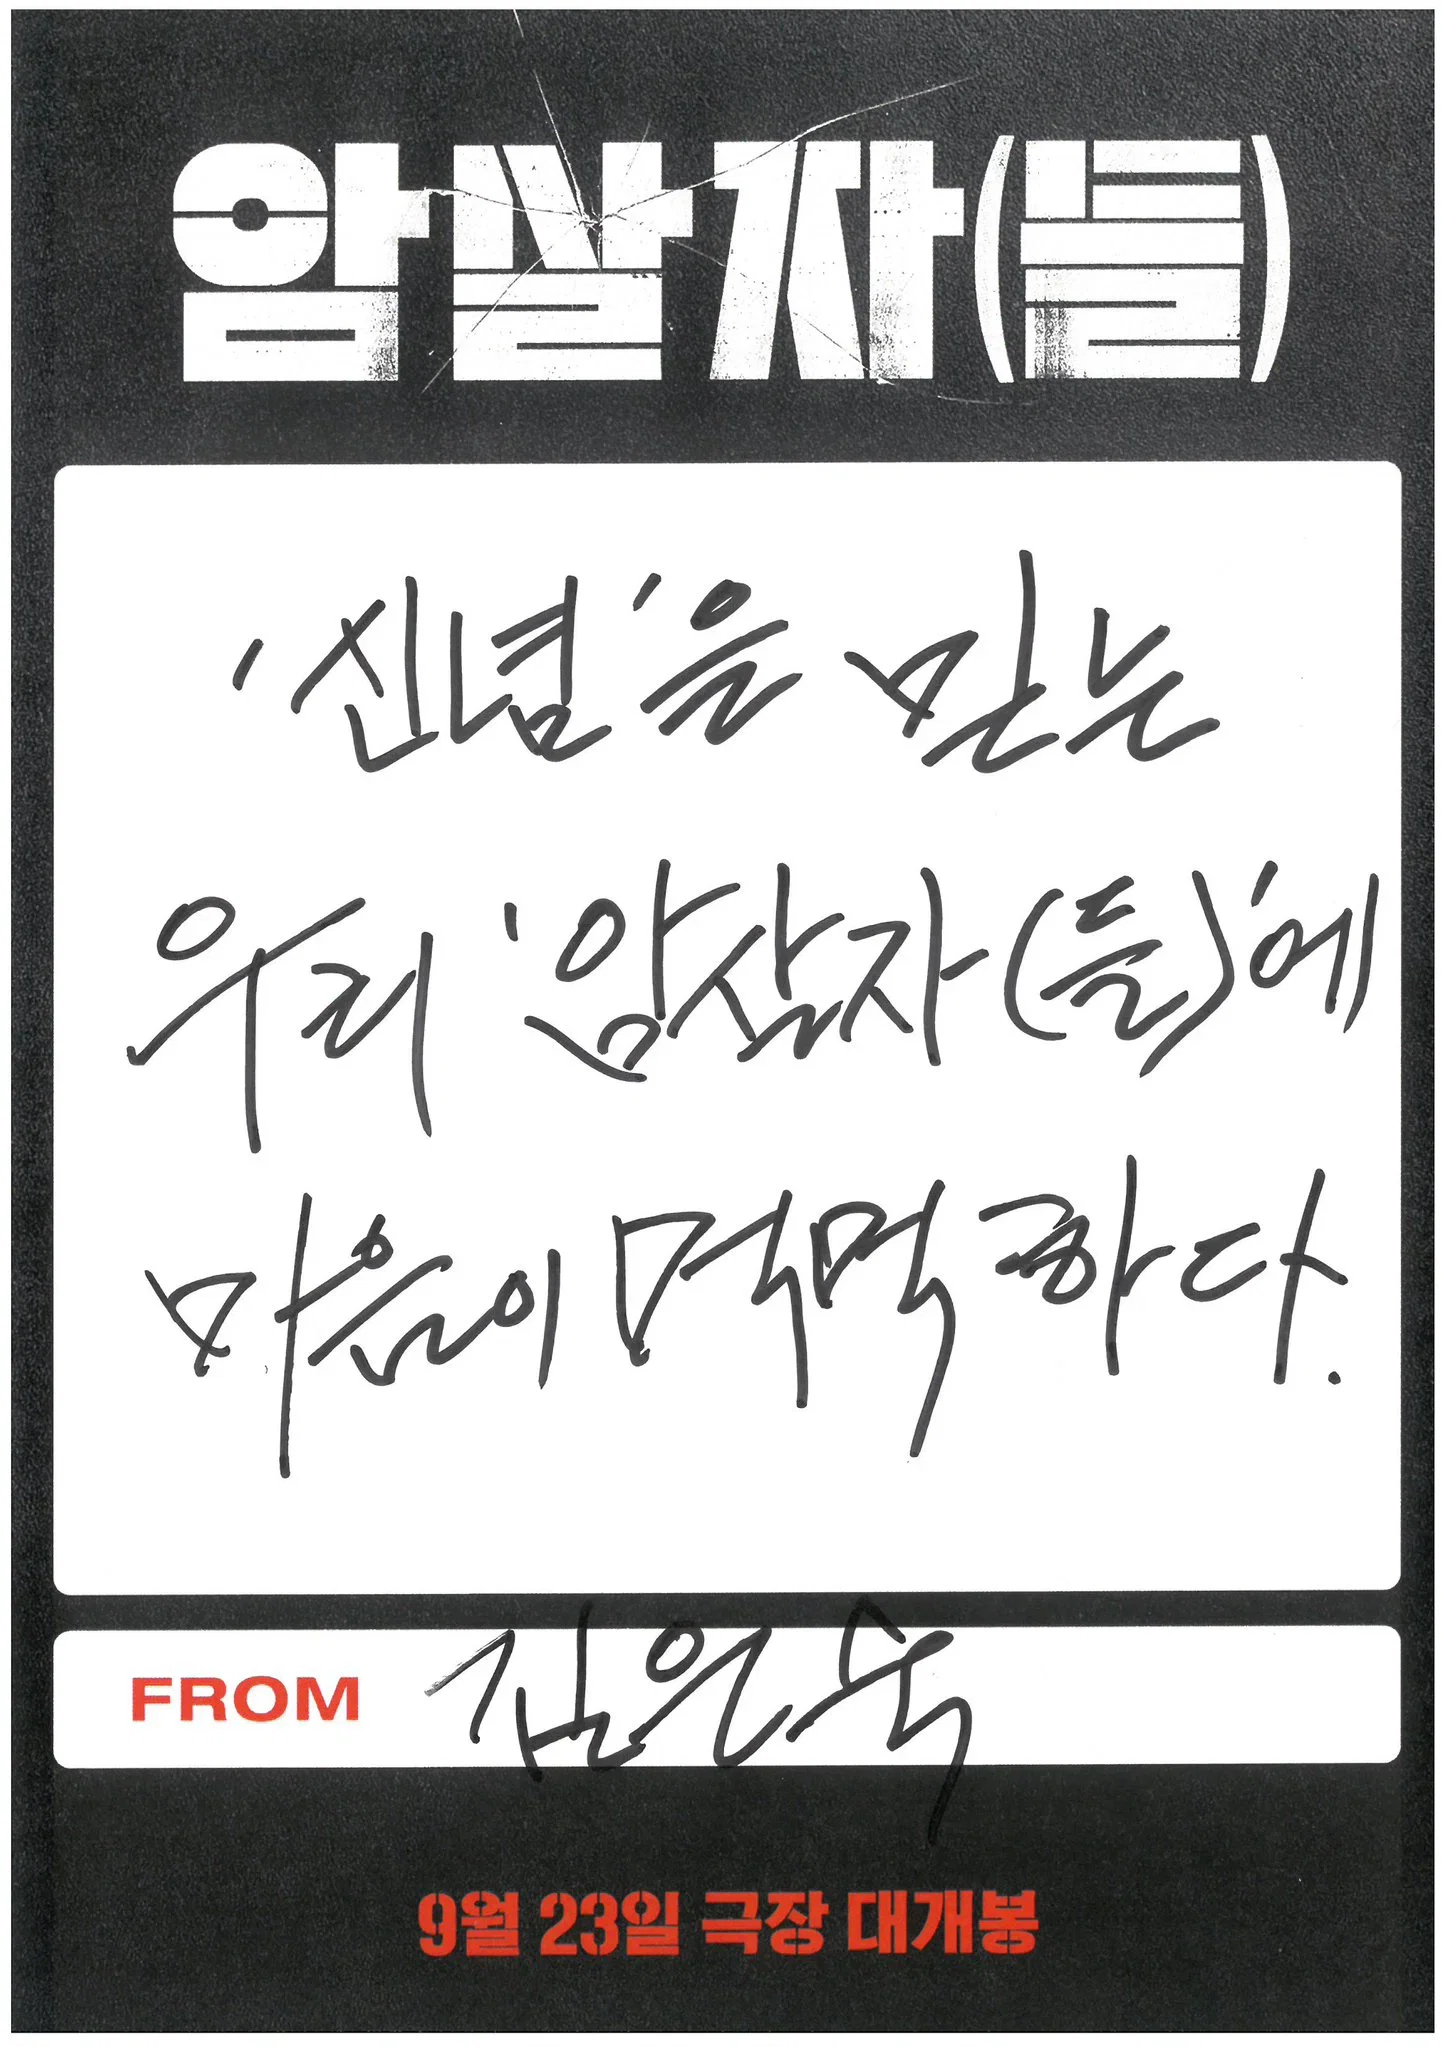 암살자(들)
'신념'을 믿는
우리 '암살자(들)'에
마음이 먹먹하다.
FROM 김은숙
9월 23일 극장 대개봉